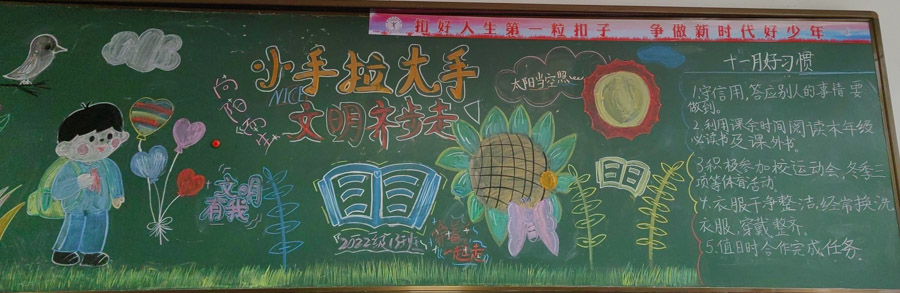 扣好人生第一粒扣子 争做新时代好少年
小手拉大手
NICE
文明齐步走
向阳而生
太阳当空照
文明有我
2022级1班
一起走
十一月好习惯
1.守信用,答应别人的事情要
做到。
2.利用课余时间阅读本年级
必读书及课外书。
3.积极参加校运动会,冬季三
项等体育活动。
4.衣服干净整洁,经常换洗
衣服,穿戴整齐。
5.值日时合作完成任务.